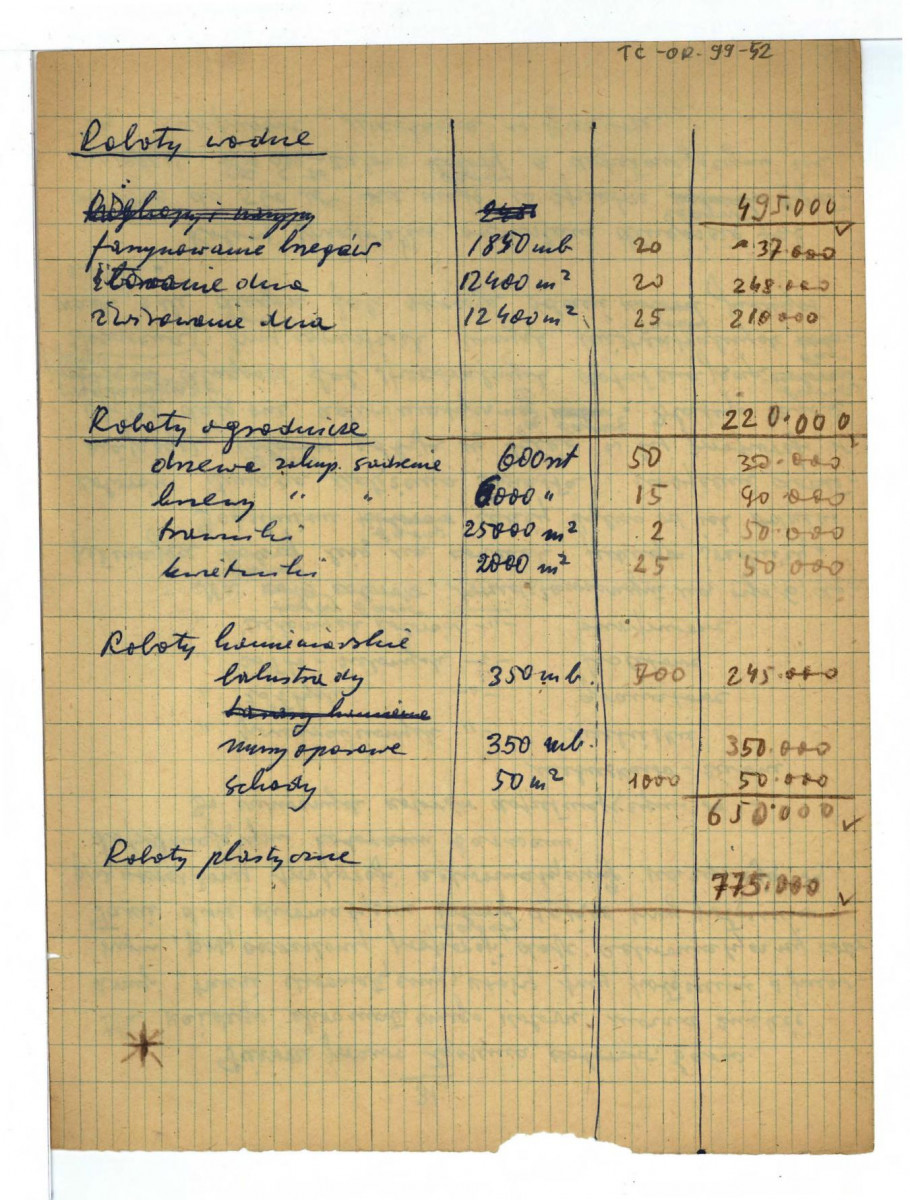 TC-OR-99-52
Roboty wodne
495.000
faszynowanie brzegów 1850 mb 20 37.000
iłowanie dna 12400 m² 20 248.000
żwirowanie dna 12400 m² 25 210.000
Roboty ogrodnicze 220.000
drzewa zakup. sadzenie 600 szt 50 30.000
krzewy " " 6000 " 15 90.000
trawniki 25000 m² 2 50.000
kwietniki 2000 m² 25 50.000
Roboty kamieniarskie
balustrady 350 mb. 700 245.000
tarasy kamienne
mury oporowe 350 mb. 350.000
schody 50 m² 1000 50.000
650.000
Roboty plastyczne
775.000